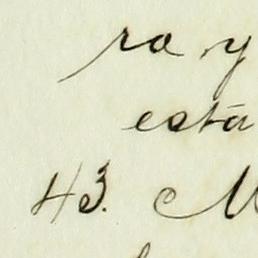 ra y
está
43. M